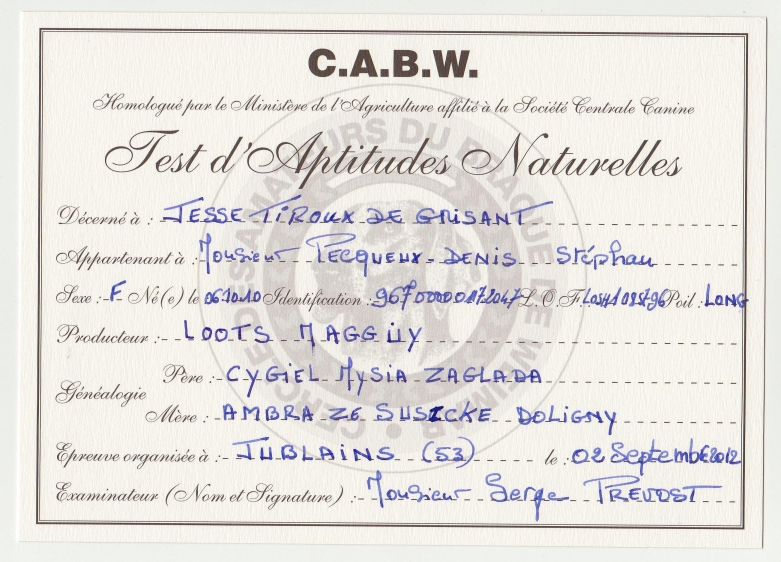 C.A.B.W.
Homologué par le Ministère de l'Agriculture affilié à la Société Centrale Canine
Test d'Aptitudes Naturelles
Décerné à : JESSE TIROUX DE GRISANT
Appartenant à : Monsieur PECQUEUX-DENIS Stéphan
Sexe : F Né(e) le 06.10.10 Identification : 967000001172047 L.O.F. Poil : LONG
Producteur : LOOTS MAGGUY
Généalogie
Père : CYGIEL MYSIA ZAGLADA
Mère : AMBRA ZE SUSICKE DOLIGNY
Epreuve organisée à : JUBLAINS (53) le : 02 Septembre 2012
Examinateur (Nom et Signature) : Monsieur Serge PREVOST